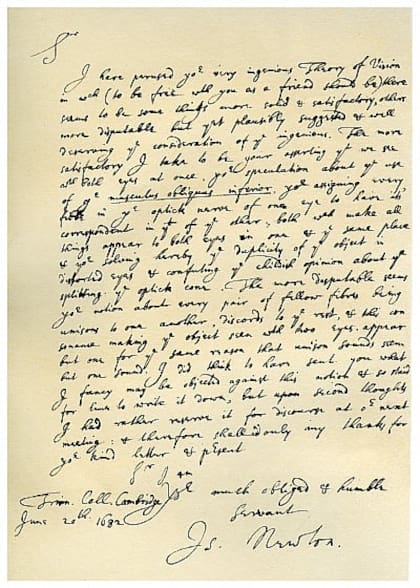 Sr
I have perused yor very ingenious Theory of Vision
in wch (to be free wth you as a friend should be) there
seems to be some things more solid & satisfactory, others
more disputable but yet plausibly suggested & well
deserving ye consideration of ye ingenious. The more
satisfactory I take to be your asserting yt we see
wth both eyes at once, yor speculation about ye use
of ye musculus obliquus inferior, yor assigning every
fibre in ye optick nerve of one eye to have its
correspondent in yt of ye other, both wch make all
things appear to both eyes in one & ye same place
& yor solving hereby ye duplicity of ye object in
distorted eyes & confuting ye childish opinion about ye
splitting ye optick cone. The more disputable seems
yor notion about every pair of fellow fibres being
unisons to one another, discords to ye rest, & this con
sonance making ye object seen wth two eyes appear
but one for ye same reason that unison sounds seem
but one sound. I did think to have sent you what
I fancy may be objected against this notion & so staid
for time to write it down, but upon second thoughts
I had rather reserve it for discourse at or next
meeting: & therefore shall add only my thanks for
yor kind letter & present
Sr I am
Yor much obliged & humble
Servant
Trin. Coll. Cambridge
June 20th. 1682
Is. Newton.